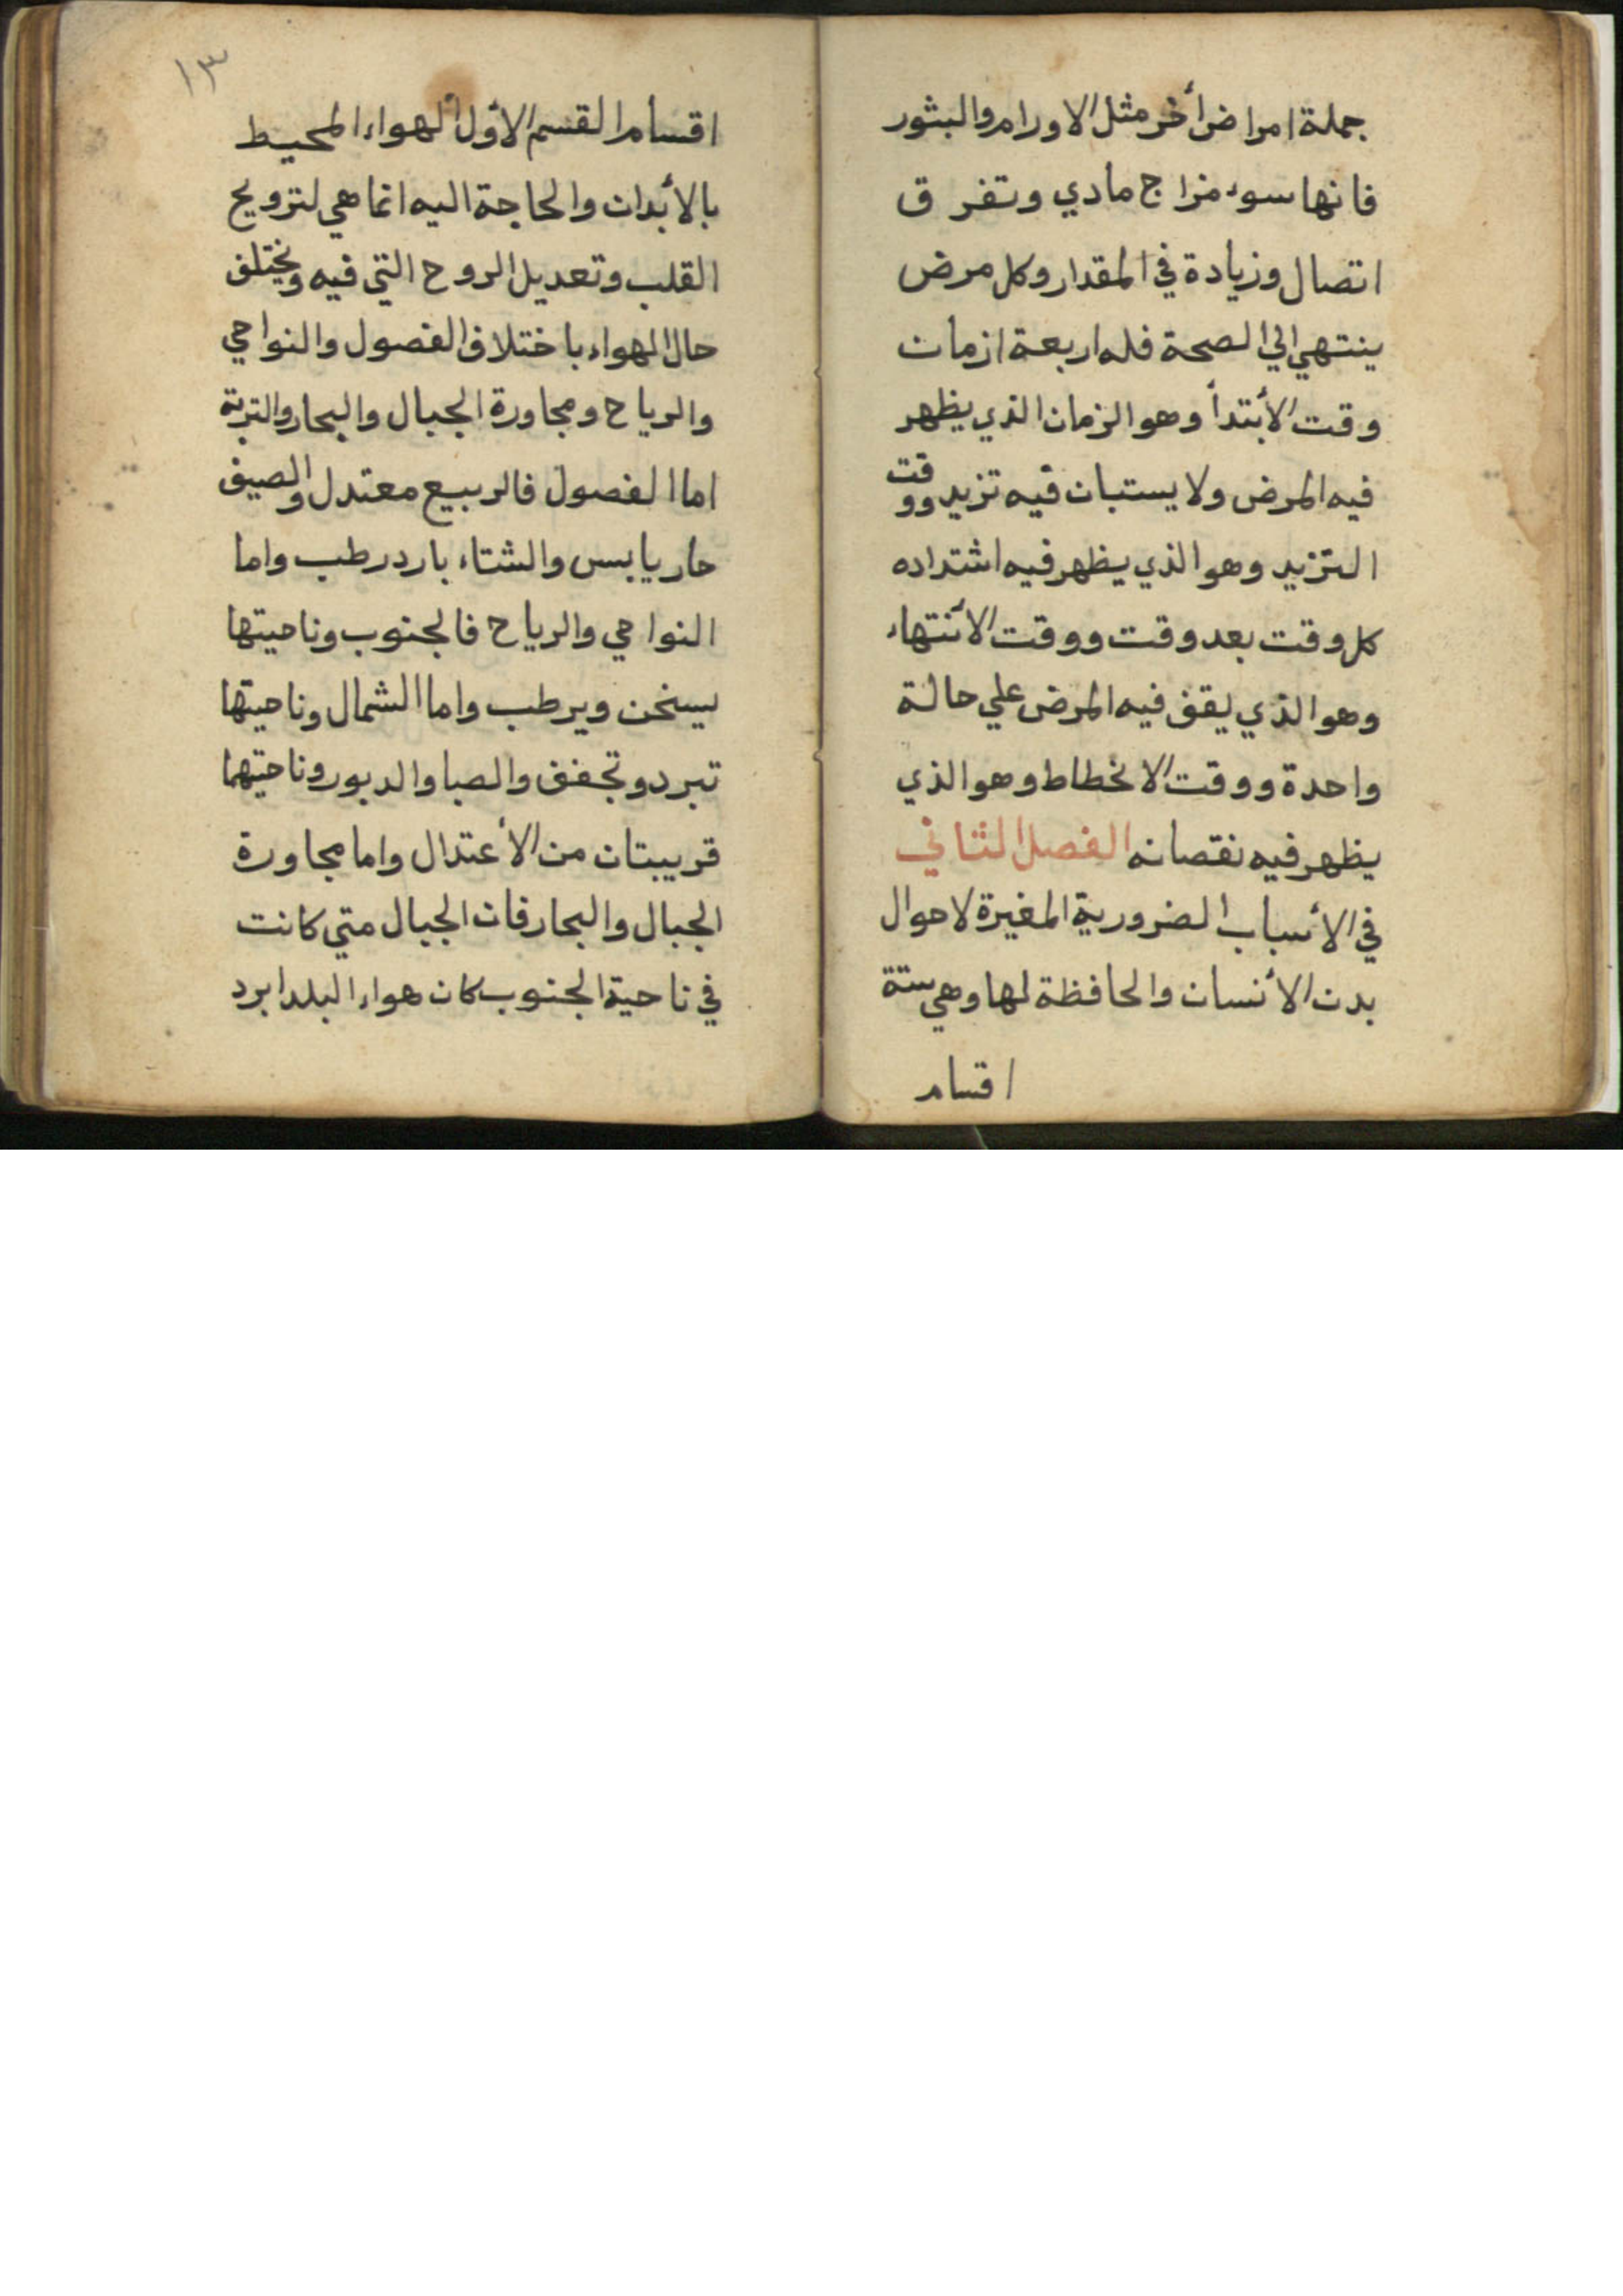 جملة امراض أخر مثل الاورام والبثور
فانها سوء مزاج مادي وتفرق
اتصال وزيادة في المقدار وكل مرض
ينتهي الي الصحة فله اربعة ازمان
وقت الأبتدأ وهو الزمان الذي يظهر
فيه المرض ولا يستبان فيه تزيد ووقت
التزيد وهو الذي يظهر فيه اشتداده
كل وقت بعد وقت ووقت الأنتهاء
وهو الذي يقف فيه المرض علي حالة
واحدة ووقت الانحطاط وهو الذي
يظهر فيه نقصانه الفصل الثاني
في الأسباب الضرورية المغيرة لاحوال
بدن الأنسان والحافظة لها وهي ستة
اقسام
١٣
اقسام القسم الأول الهواء المحيط
بالأبدان والحاجة اليه انما هي لترويح
القلب وتعديل الروح التي فيه ويختلف
حال الهواء باختلاف الفصول والنواحي
والرياح ومجاورة الجبال والبحار والتربة
اما الفصول فالربيع معتدل والصيف
حار يابس والشتاء بارد رطب واما
النواحي والرياح فالجنوب وناحيتها
يسخن ويرطب واما الشمال وناحيتها
تبرد وتجفف والصبا والدبور وناحيتهما
قريبتان من الأعتدال واما مجاورة
الجبال والبحار فان الجبال متي كانت
في ناحية الجنوب كان هواء البلد ابرد